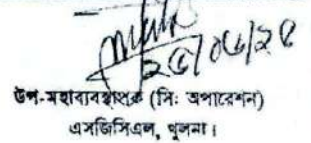 ২৫/০৬/২৫
উপ-মহাব্যবস্থাপক (সি: অপারেশন)
এসজিসিএল, খুলনা।